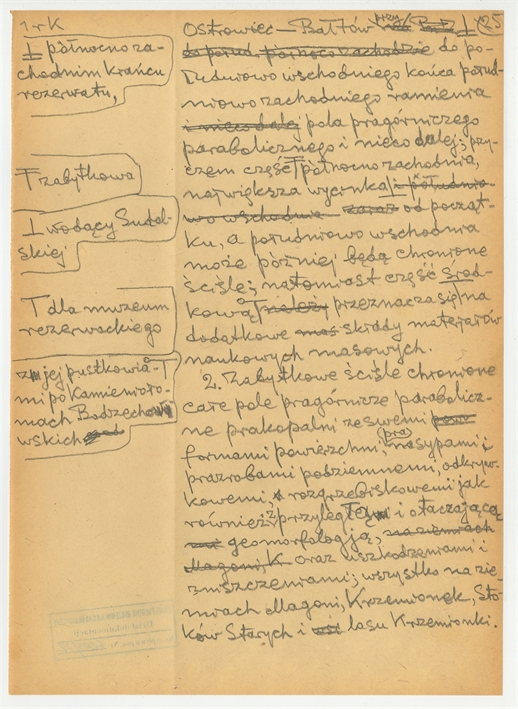 1 r K
125
⊥ północno za-
chodnim krańcu
rezerwatu,
Γ zabytkowa
⊥ wodący Sudol-
skiej
T dla muzeum
rezerwackiego
z jej pustkowia-
mi po kamienioło-
mach Bodzechow
wskich
Ostrowiec — Bałtów przy
do połud. północno zachodzie do po-
łudniowo wschodniego końca połud-
niowo zachodniego ramienia
i nieco dalej pola pragórniczego
parabolicznego i nieco dalej; przy-
czem część Γ północno zachodnia,
największa wycinka ⊥ i południo-
wo wschodnia zaraz od począt-
ku, a południowo wschodnia
może później będą chronione
ściśle; natomiast część środ-
kową T należy przeznacza się na
dodatkowe składy materjałów
naukowych masowych.
2. Zabytkowe ściśle chronione
całe pole pragórnicze parabolicz-
ne prakopalni ze swemi
formami powierzchni, (pra)nasypami i
prazrobami podziemnemi, odkryw-
kowemi, rozgrzebiskowemi jak
również z przyległą i otaczającą
geomorfologją, na ziemiach
Magoni, K oraz uszkodzeniami i
zniszczeniami; wszystko na zie-
miach Magoni, Krzemionek, Sto-
ków Starych i lasu Krzemionki.